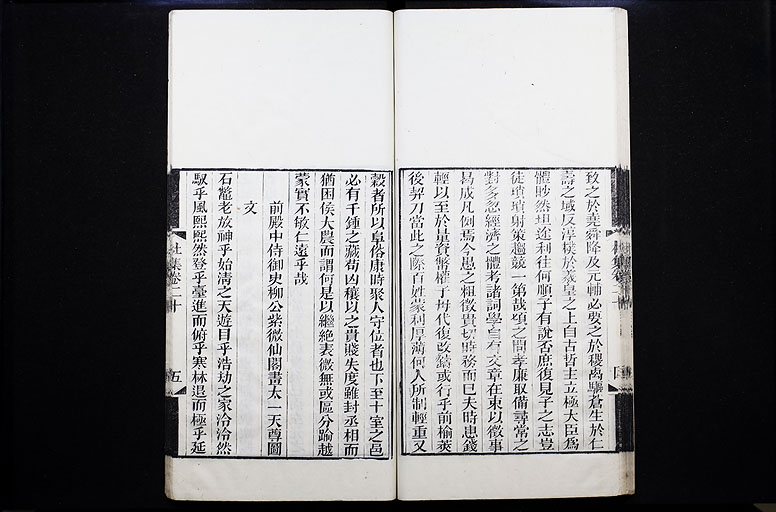 致之於堯舜降及元輔必要之於稷禼驅蒼生於仁
壽之域反淳樸於羲皇之上自古哲主立極大臣爲
體眇然坦途利往何順子有說否庶復見子之志豈
徒瑣瑣射策趨競一第哉頃之問孝廉取備尋常之
對多忽經濟之體考諸詞學自有文章在束以徵事
曷成凡例焉今愚之粗徵貴切時務而已夫時患錢
輕以至於量資幣權子母代復改鑄或行乎前榆莢
後契刀當此之際百姓蒙利厚薄何人所制輕重又
穀者所以阜俗康時聚人守位者也下至十室之邑
必有千鍾之藏苟凶穰以之貴賤失度雖封丞相而
猶困侯大農而謂何是以繼絶表微無或區分踰越
蒙實不敏仁遠乎哉
前殿中侍御史柳公紫微仙閣畫太一天尊圖
文
石鼈老放神乎始清之天遊目乎浩劫之家泠泠然
馭乎風熙熙然登乎臺進而俯乎寒林退而極乎延
杜集卷二十
五